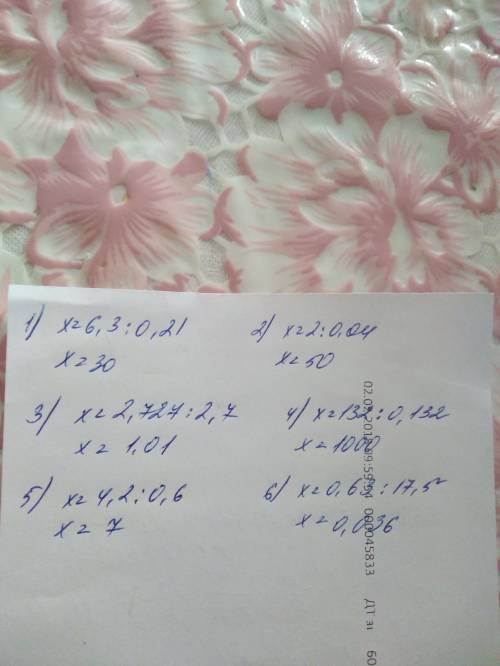 1) x=6,3:0,21
x=30
2) x=2:0,04
x=50
3) x=2,727:2,7
x= 1,01
4) x=132:0,132
x=1000
5) x=4,2:0,6
x= 7
6) x=0,63:17,5
x=0,036
000045833
ДТ
60